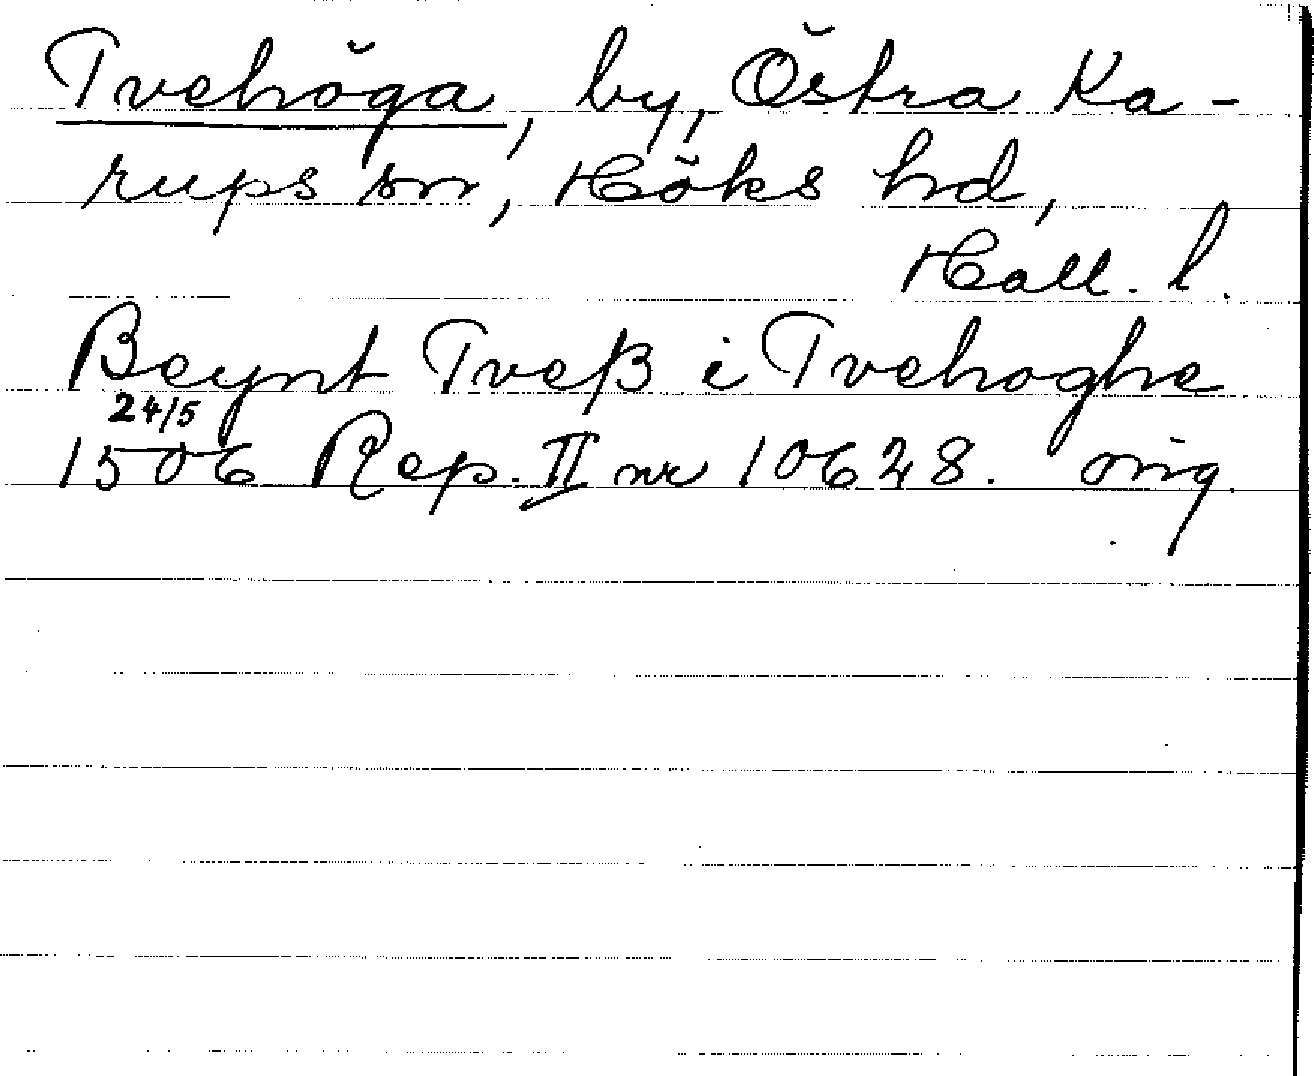 Tvehöga, by, Östra Ka-
rups sn, Höks hd,
Hall. l.
Beynt Tveß i Tvehoghe
24/5
1506 Rep. II nr 10628. orig.